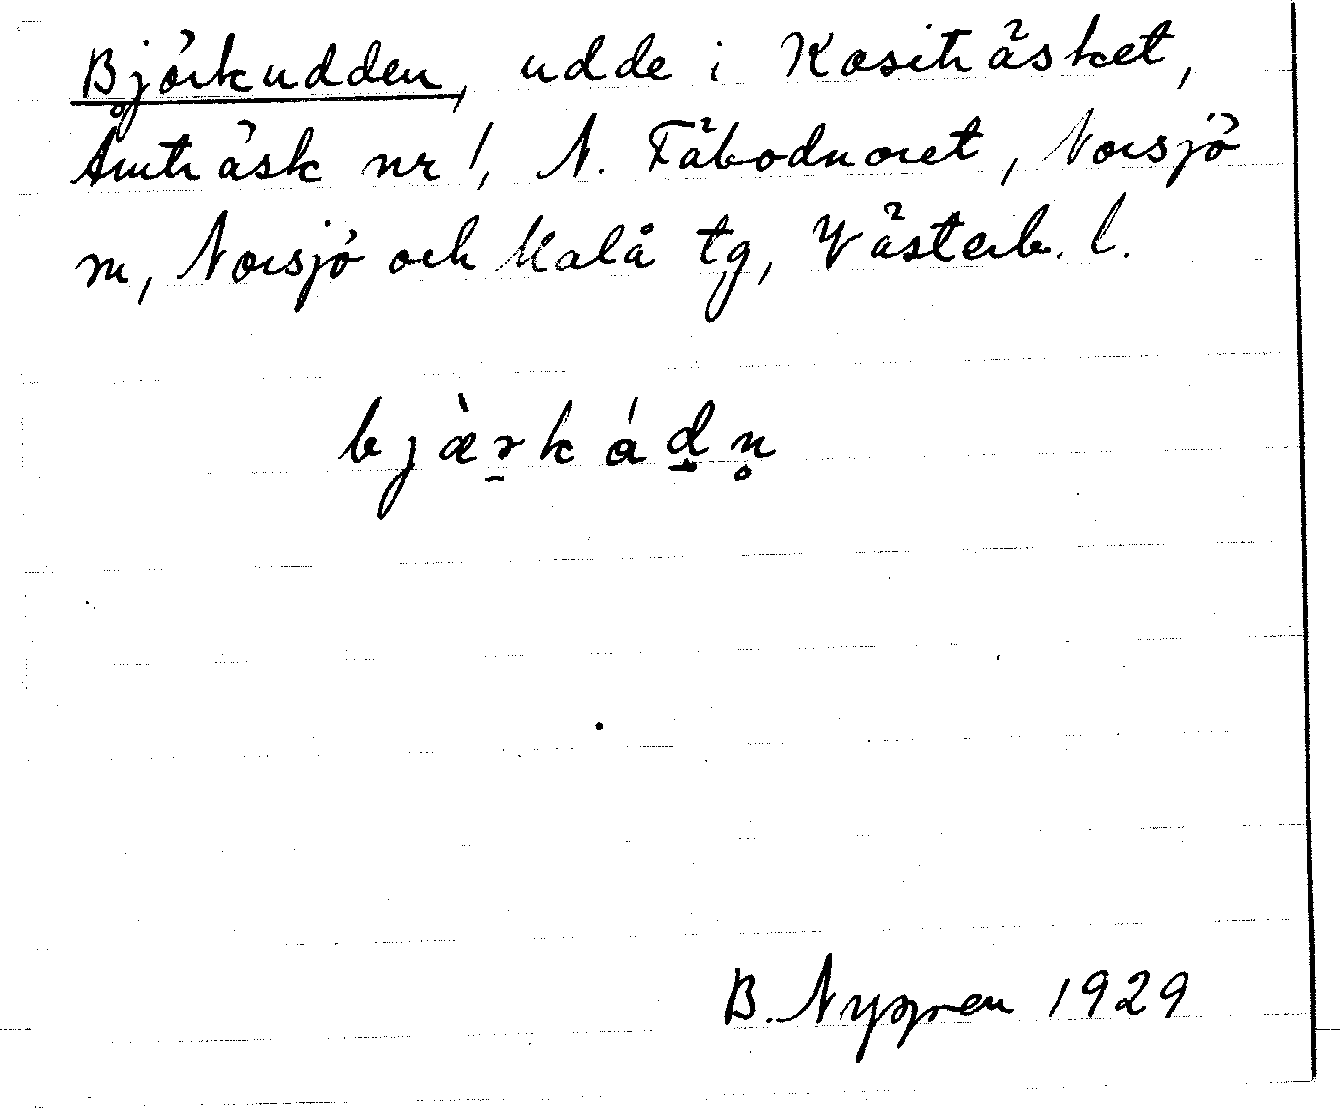 Björkudden, udde i Kositräsket,
Åmträsk nr 1, N. Fäbodnoret, Norsjö
sn, Norsjö och Malå tg, Västerb. l.
bjæ̀r̠kád̠n̥
B. Nygren 1929